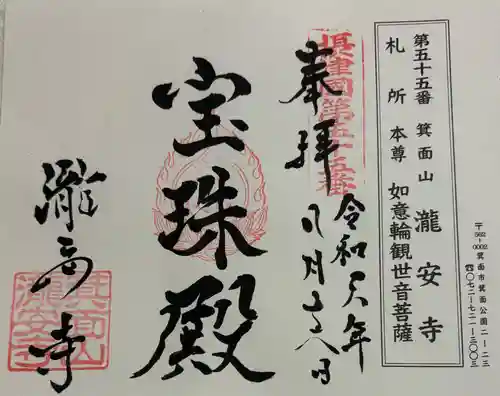 第五十五番 箕面山 瀧安寺
札所本尊 如意輪観世音菩薩
〒562-0002 箕面市箕面公園二-二三
☎〇七二-七二一-三〇〇三
摂津国第五十五番
奉拝
令和元年
宝珠殿
瀧安寺
箕面山
瀧安寺